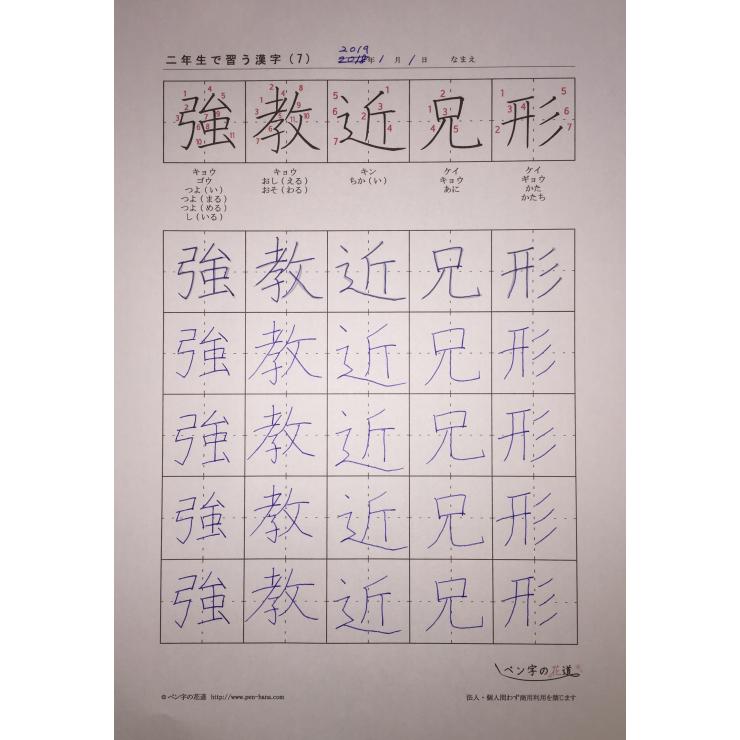 二年生で習う漢字（7） 2019 2018年 1月 1日 なまえ
強 教 近 兄 形
キョウ ゴウ つよ（い） つよ（まる） つよ（める） し（いる）
キョウ おし（える） おそ（わる）
キン ちか（い）
ケイ キョウ あに
ケイ ギョウ かた かたち
強 教 近 兄 形
強 教 近 兄 形
強 教 近 兄 形
強 教 近 兄 形
強 教 近 兄 形
ペン字の花道
© ペン字の花道 http://www.pen-hana.com 法人・個人問わず商用利用を禁じます